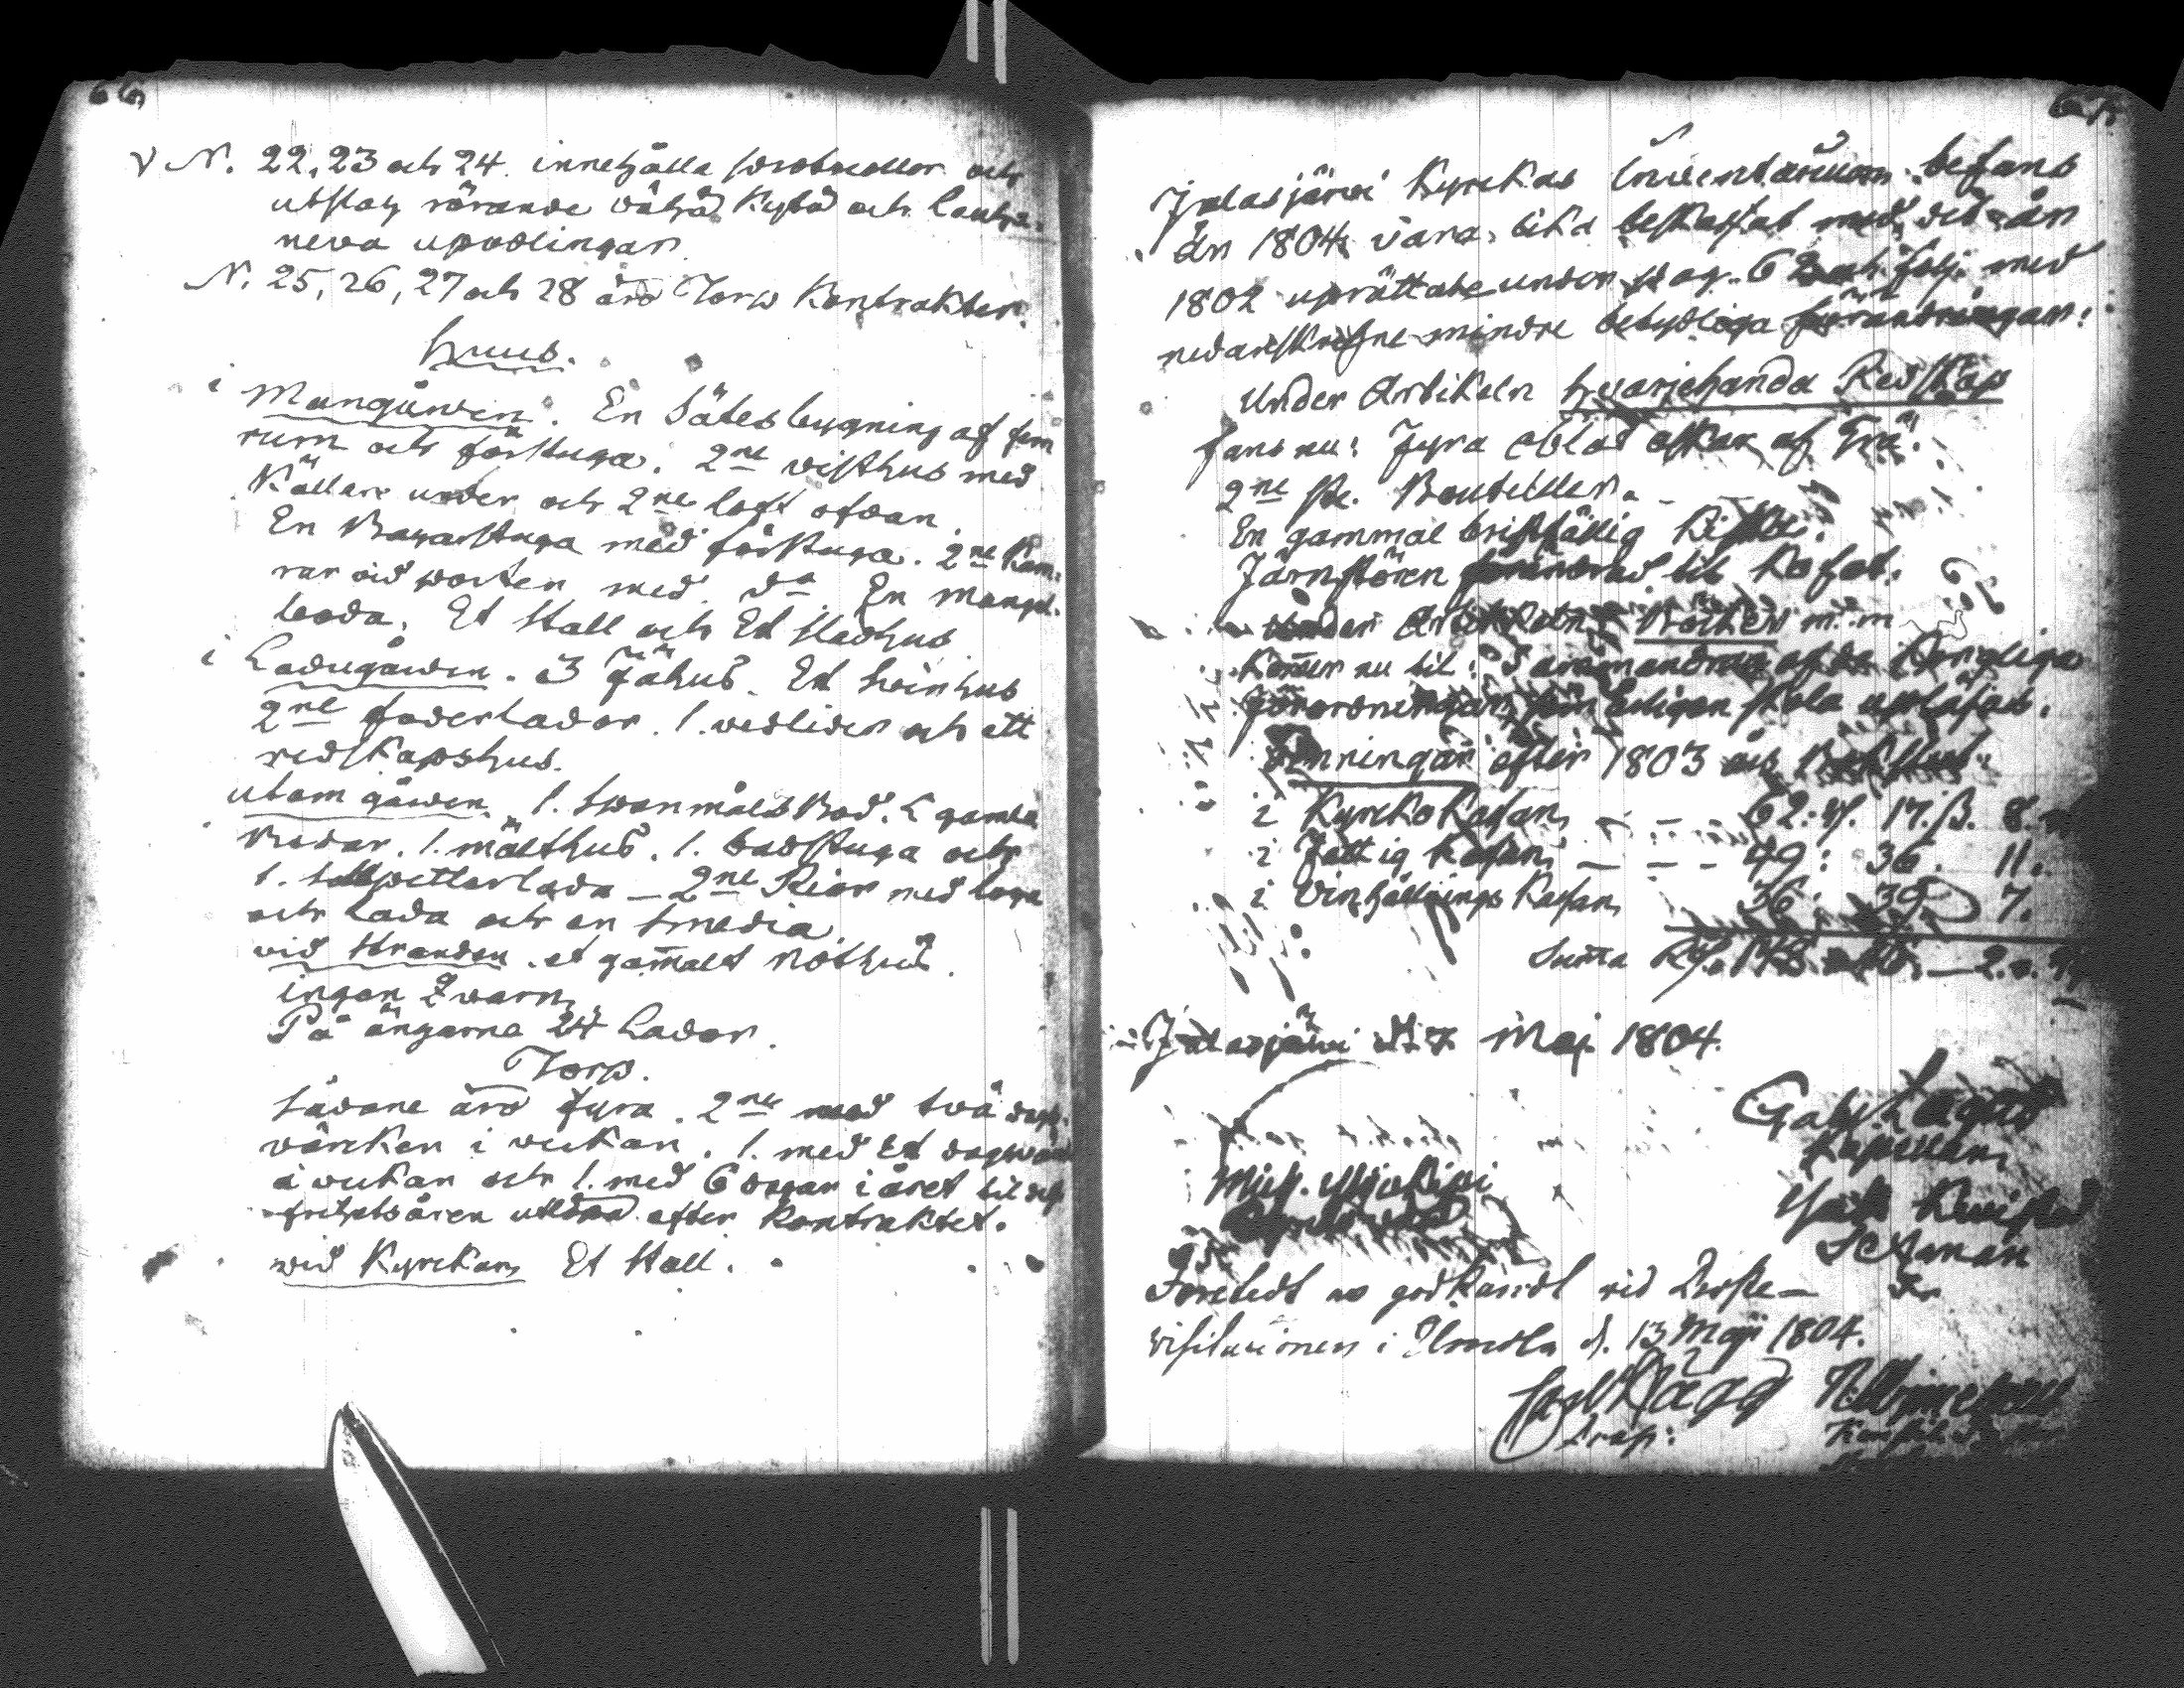 66
N. 22, 23 och 24. innehålla protocoller och
utslag rörande Kytö och Lauha=
neva updlingar.
N. 25, 26, 27 och 28 äro Torp Kontrakter.
Huus.
i Mangåwen. En Sätesbygning af fem
rum och förstuga. 2ne wisthus med
Källare under och 2ne loft ofvan.
En Bagarstuga med förstuga. 2ne Kam=
rar vid porten med do En Mangel=
boda. Et Stall och Et Slädhus
i Ladugåwen. 3 Fähus. Et Swinhus
2ne foderlador. 1. wedlider och ett
redskapshus.
utom gåwen. 1. twänmåls Bod. 2 gamla
Bodar. 1. mälthus. 1. badstuga och
1. Sallpetterlada — 2ne Rior med loga
och Lada och en Smedia.
wid Stranden. et gam̄alt Nothus.
ingen Qwarn.
På ängarna 24 Lador.
Torp.
Sådane äro fyra. 2ne med twå dags=
värcken i weckan. 1. med Et dagswerck
i weckan och 1. med 6 dagar i året til dess
frihetsåren utlöpa efter Kontraktet.
wid Kyrckan Et Stall.
Jalasjärvi Kyrckas Inventarium befans
år 1804 vara lika beskaffat med det år
1802 uprättade under pag. 62 och följ. med
nedanskrefne mindre betydliga förändringar:
Under Artikeln hvarjehanda Redskap
fans nu: Fyra Oblat askar af Trä.
2ne st. Bouteiller.
En gammal bristfällig Kista.
Järnstören förändrad til Kofot.
Under Artikeln Böcker m.m
Kom̄er nu til: af de Kongliga
Förordningar som årligen skola upläsas.
Penningar efter 1803 års Bokslut.
i Kyrcko Kassan — — — 62: rd. 17. ß. 8.
i Fattig Kassan — — — 49: 36. 11.
i Vinhållnings Kassan 36: 39 7.
Sum̄a
Jalasjärvi d. 7 Maj 1804.
Gabr. Lagus
Kapellan
Mich.
Företedt och godkändt vid Proste—
visitationen i Ilmola d. 13 Maji 1804.
Prap: